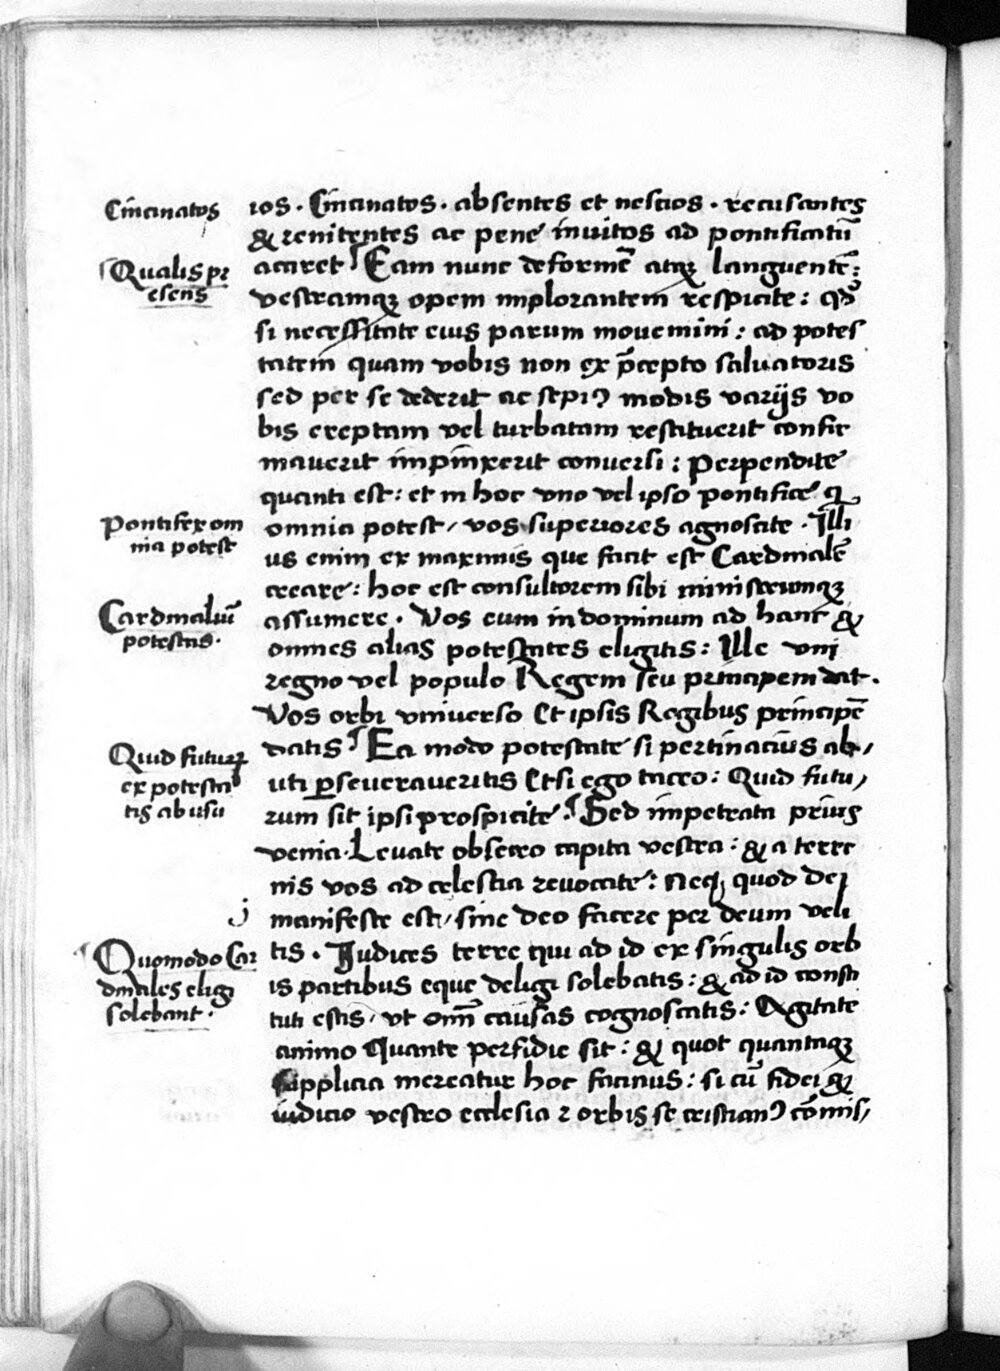 Cincinatos
Qualis pr
esens
Pontifex om
nia potest
Cardinaliū
potestas.
Quid futurꝝ
ex potesta
tis abusu
j
Quomodo Car
dinales eligi
solebant.
ios. Cincinatos. absentes et nescios. recusantes
& renitentes ac pene inuitos ad pontificatū
acciret Eam nunc deformē atqꝫ languentē:
vestramqꝫ opem implorantem respicite: qđ
si necessitate eius parum mouemini: ad potes
tatem quam vobis non ex p̄cepto saluatoris
sed per se dederit ac sepiꝰ modis varijs vo
bis ereptam vel turbatam restituerit confir
mauerit impinxerit conuersi: Perpendite
quanti est: et in hoc vno vel ipso pontifice q̨
omnia potest, vos superiores agnoscite. Illi
us enim ex maximis que facit est Cardinalē
creare: hoc est consultorem sibi ministrumqꝫ
assumere. Vos eum in dominum ad hanc &
omnes alias potestates eligitis: Ille vni
regno vel populo Regem seu principem dat.
Vos orbi vniuerso Et ipsis Regibus principē
datis Ea modo potestate si pertinacius ab,
uti ꝑseueraueritis Etsi ego taceo: Quid futu,
rum sit ipsi prospicite. Sed impetrata prius
venia. Leuate obsecro capita vestra: & a terre
nis vos ad celestia reuocate: Neqꝫ quod dei
manifeste est, sine deo facere per deum veli
tis. Iudices terre qui ad id ex singulis orb
is partibus eque deligi solebatis: & ad id consti
tuti estis, vt om̄ causas cognoscatis: Agitate
animo Quante perfidie sit: & quot quantaqꝫ
supplicia mereatur hoc facinus: si cū fidei &
iudicio vestro ecclesia ⁊ orbis se cristianꝰ cōmis,